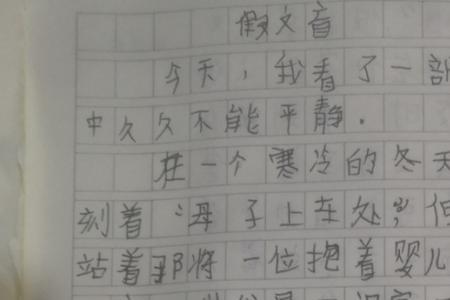 假文盲
今天，我看了一部
中久久不能平静.
在一个寒冷的冬天
刻着“母子上车处”，但
站着那将一位抱着婴儿